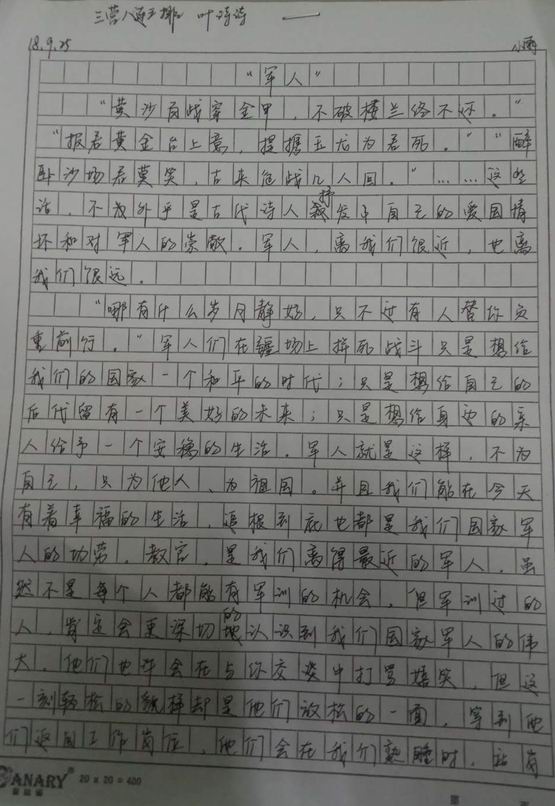 三营八连王挪 叶诗诗 —
18.9.25 小雨
“军人”
“黄沙百战穿金甲，不破楼兰终不还。”
“报君黄金台上意，提携玉龙为君死。”“醉
卧沙场君莫笑，古来征战几人回。”……这些
话，不为外乎是古代诗人抒发中自己的爱国情
怀和对军人的崇敬。军人，离我们很近，也离
我们很远。
“哪有什么岁月静好，只不过有人替你负
重前行。”军人们在疆场上拼死战斗只是想给
我们的国家一个和平的时代；只是想给自己的
后代留有一个美好的未来；只是想给身边的亲
人给予一个安稳的生活。军人就是这样，不为
自己，只为他人、为祖国。并且我们能在今天
有着幸福的生活，追根到底也都是我们国家军
人的功劳。教官，是我们离得最近的军人，虽
然不是每个人都能有军训的机会，但军训过的
人，肯定会更深切的地认识到我们国家军人的伟
大。他们也许会在与你交谈中打骂嬉笑，但这
一刻轻松的貌样却是他们放松的一面，等到他
们返回工作岗位，他们会在我们熟睡时，站岗
CANARY 20 x 20 = 400